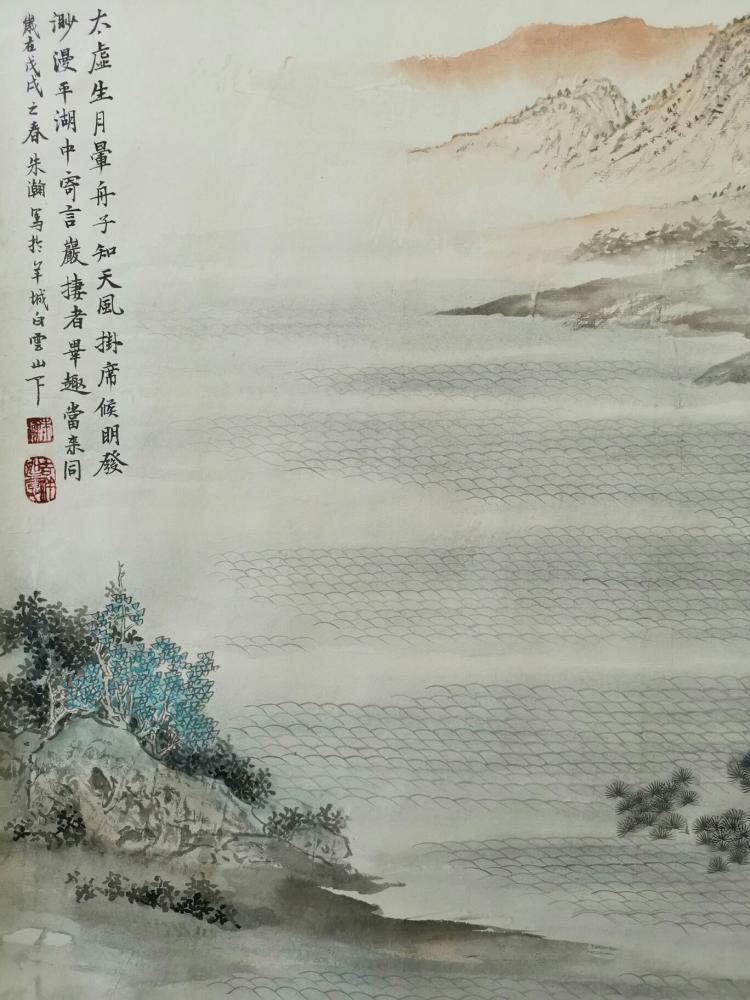 太虛生月暈舟子知天風掛席候明發
渺漫平湖中寄言巖捿者畢趣當來同
歲在戊戌之春朱瀚寫於羊城白雲山下